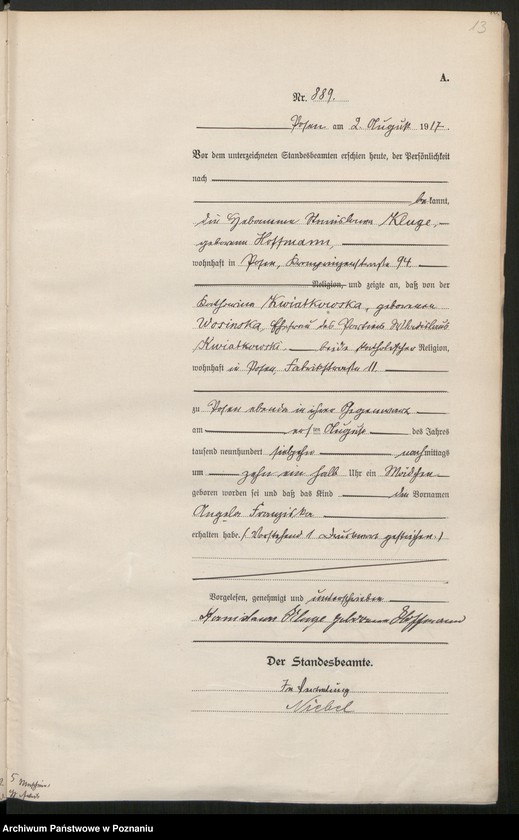 13
A.
Nr. 889.
Posen am 2. August 1917.
Vor dem unterzeichneten Standesbeamten erschien heute, der Persönlichkeit
nach
bekannt,
die Hebamme Stanislawa Kluge,
geborene Hoffmann,
wohnhaft in Posen, Kronprinzenstraße 94
Religion, und zeigte an, daß von der
Kwiatkowska, geborenen
Wosinska, Ehefrau des Portiers Wladislaus
Kwiatkowski, beide katholischer Religion,
wohnhaft in Posen, Fabrikstraße 11.
zu Posen ebenda in ihrer Gegenwart
am ersten August des Jahres
tausend neunhundert siebzehn nachmittags
um zehn ein halb Uhr ein Mädchen
geboren worden sei und daß das Kind den Vornamen
Angela Franziska
erhalten habe. (Vorstehend 1 Druckwort gestrichen.)
Vorgelesen, genehmigt und unterschrieben
Stanislawa Kluge geborene Hoffmann
Der Standesbeamte.
In Vertretung
Niebel
Archiwum Państwowe w Poznaniu